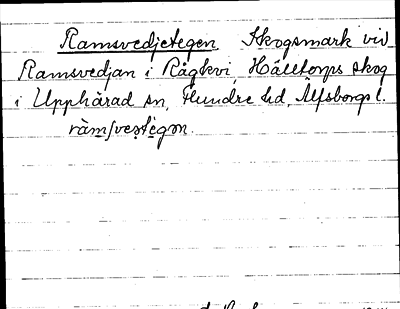 Ramsvedjetegen Skogsmark vid
Ramsvedjan i Rågtvi, Hälltorps skog
i Upphärad sn, Flundre hd, Älfsborgs l.